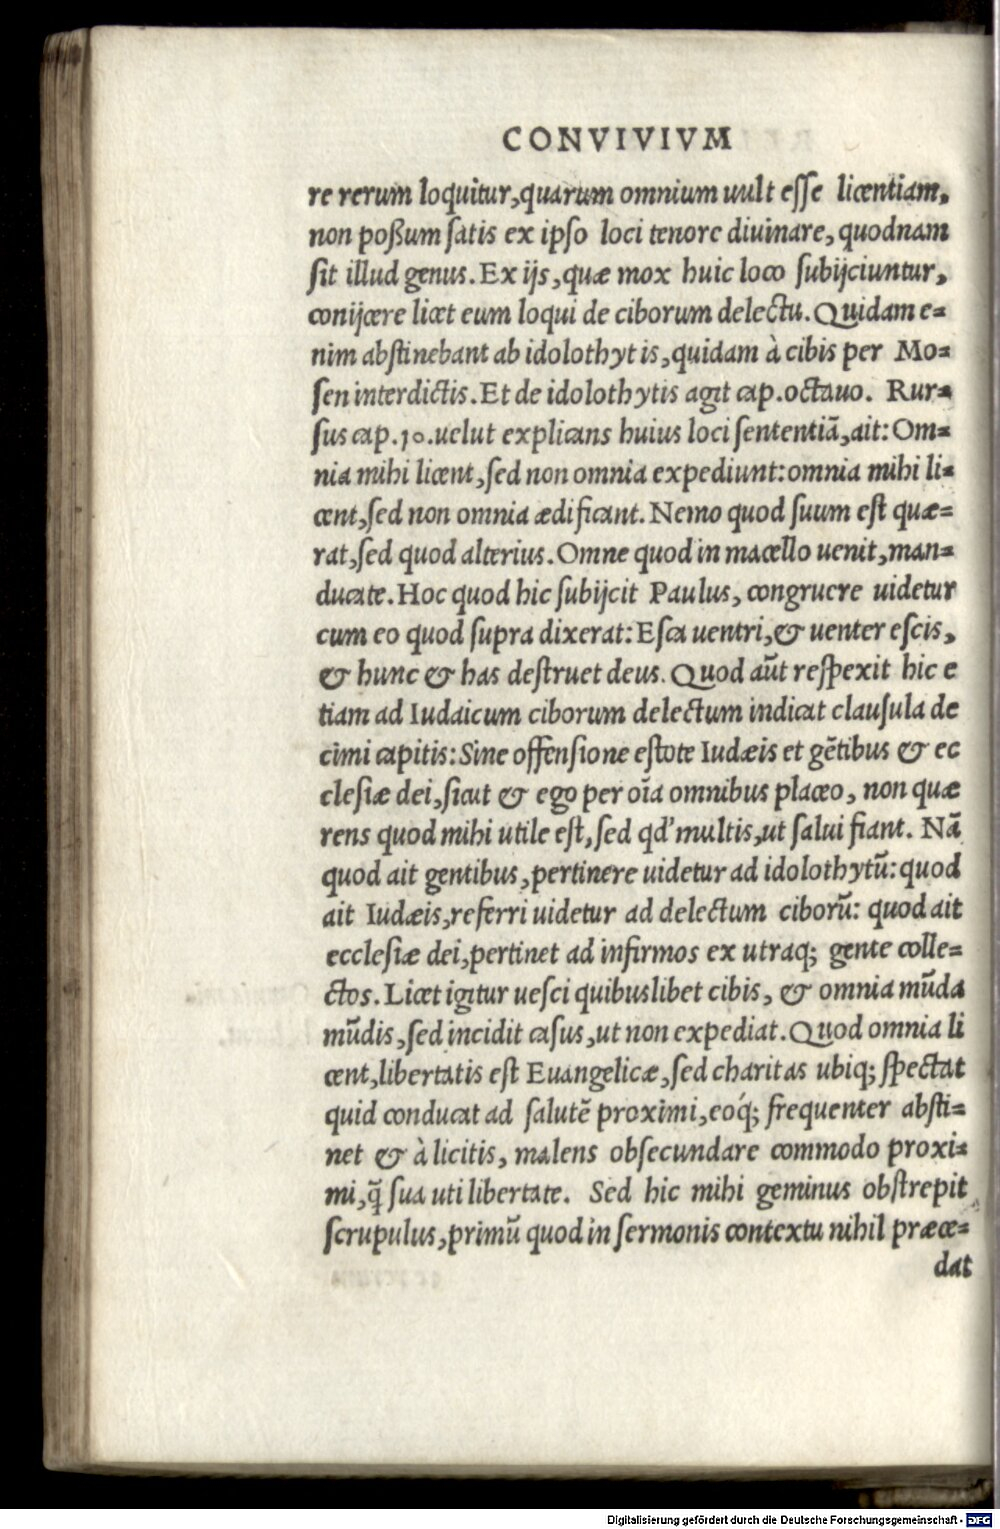 CONVIVIVM
re rerum loquitur, quarum omnium uult esse licentiam,
non poßum satis ex ipso loci tenore diuinare, quodnam
sit illud genus. Ex ijs, quæ mox huic loco subijciuntur,
conijcere licet eum loqui de ciborum delectu. Quidam e=
nim abstinebant ab idolothytis, quidam à cibis per Mo=
sen interdictis. Et de idolothytis agit cap. octauo. Rur=
sus cap. 10. uelut explicans huius loci sententiã, ait: Om=
nia mihi licent, sed non omnia expediunt: omnia mihi li=
cent, sed non omnia ædificant. Nemo quod suum est quæ=
rat, sed quod alterius. Omne quod in macello uenit, man=
ducate. Hoc quod hic subijcit Paulus, congruere uidetur
cum eo quod supra dixerat: Esca uentri, & uenter escis,
& hunc & has destruet deus. Quod aũt respexit hic e
tiam ad Iudaicum ciborum delectum indicat clausula de
cimi capitis: Sine offensione estote Iudæis et gẽtibus & ec
clesiæ dei, sicut & ego per oĩa omnibus placeo, non quæ
rens quod mihi utile est, sed qd' multis, ut salui fiant. Nã
quod ait gentibus, pertinere uidetur ad idolothytũ: quod
ait Iudæis, referri uidetur ad delectum ciborũ: quod ait
ecclesiæ dei, pertinet ad infirmos ex utraq; gente colle=
ctos. Licet igitur uesci quibuslibet cibis, & omnia mũda
mũdis, sed incidit casus, ut non expediat. Quod omnia li
cent, libertatis est Euangelicæ, sed charitas ubiq; spectat
quid conducat ad salutẽ proximi, eoq́; frequenter absti=
net & à licitis, malens obsecundare commodo proxi=
mi, q̃ sua uti libertate. Sed hic mihi geminus obstrepit
scrupulus, primũ quod in sermonis contextu nihil præce=
dat
Digitalisierung gefördert durch die Deutsche Forschungsgemeinschaft - DFG